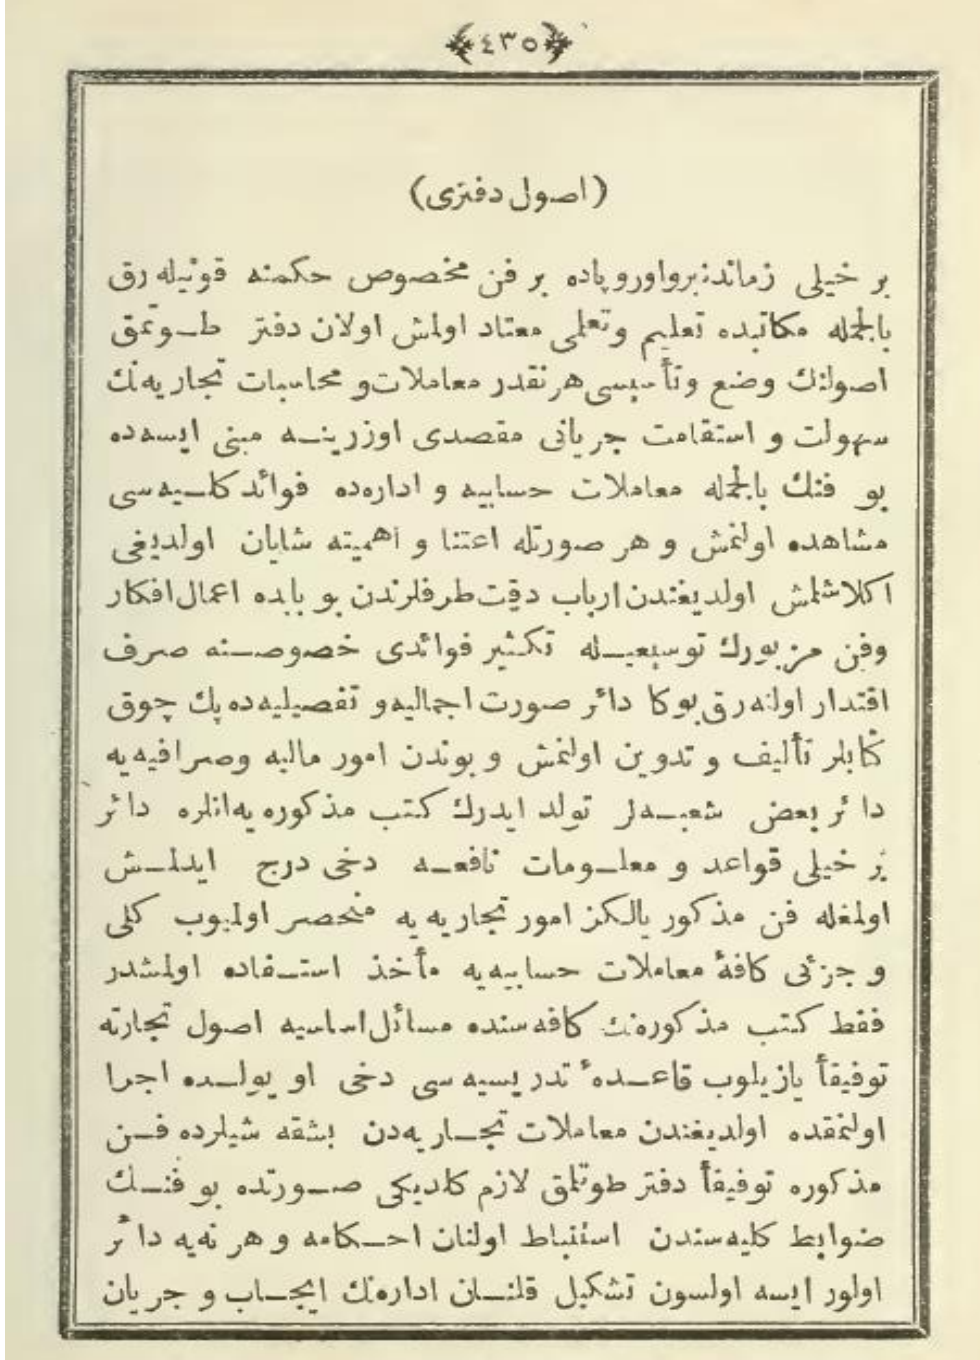 ٤٣٥
(اصول دفتری)
بر خیلی زماندنبرواوروپاده بر فن مخصوص حکمنه قونیله رق
بالجمله مکاتبده تعلیم وتعلمی معتاد اولمش اولان دفتر طـوتمق
اصولنك وضع وتأسیسی هرنقدر معاملات و محاسبات تجاریه نك
سهولت و استقامت جریانی مقصدی اوزرینه مبنی ایسه ده
بو فنك بالجمله معاملات حسابیه و اداره ده فوائد کلـیه سی
مشاهده اولنمش و هر صورتله اعتنا و اهمیته شایان اولدیغی
اکلاشلمش اولدیغندن ارباب دقت طرفلرندن بو بابده اعمال افکار
وفن مزبورك توسیعیـله تکثیر فوائدی خصوصـنه صرف
اقتدار اولنه رق بوکا دائر صورت اجمالیه و تفصیلیه ده پك چوق
کتابلر تألیف و تدوین اولنمش و بوندن امور مالیه وصرافیه یه
دائر بعض شعبـه لر تولد ایدرك کتب مذکوره یه انلره دائر
بر خیلی قواعد و معلـومات نافعـه دخی درج ایدلـش
اولمغله فن مذکور یالکز امور تجاریه یه منحصر اولمیوب کلی
و جزئی کافهٔ معاملات حسابیه یه مأخذ استـفاده اولمشدر
فقط کتب مذکوره نك کافه سنده مسائل اساسیه اصول تجارته
توفیقأ یازیلوب قاعـدهٔ تدریسیه سی دخی او یولـده اجرا
اولنمقده اولدیغندن معاملات تجـاریه دن بشقه شیلرده فـن
مذکوره توفیقأ دفتر طوتلمق لازم کلدیکی صـورتده بو فنـك
ضوابط کلیه سندن استنباط اولنان احـکامه و هر نه یه دائر
اولور ایسه اولسون تشکیل قلنـان اداره نك ایجـاب و جریان